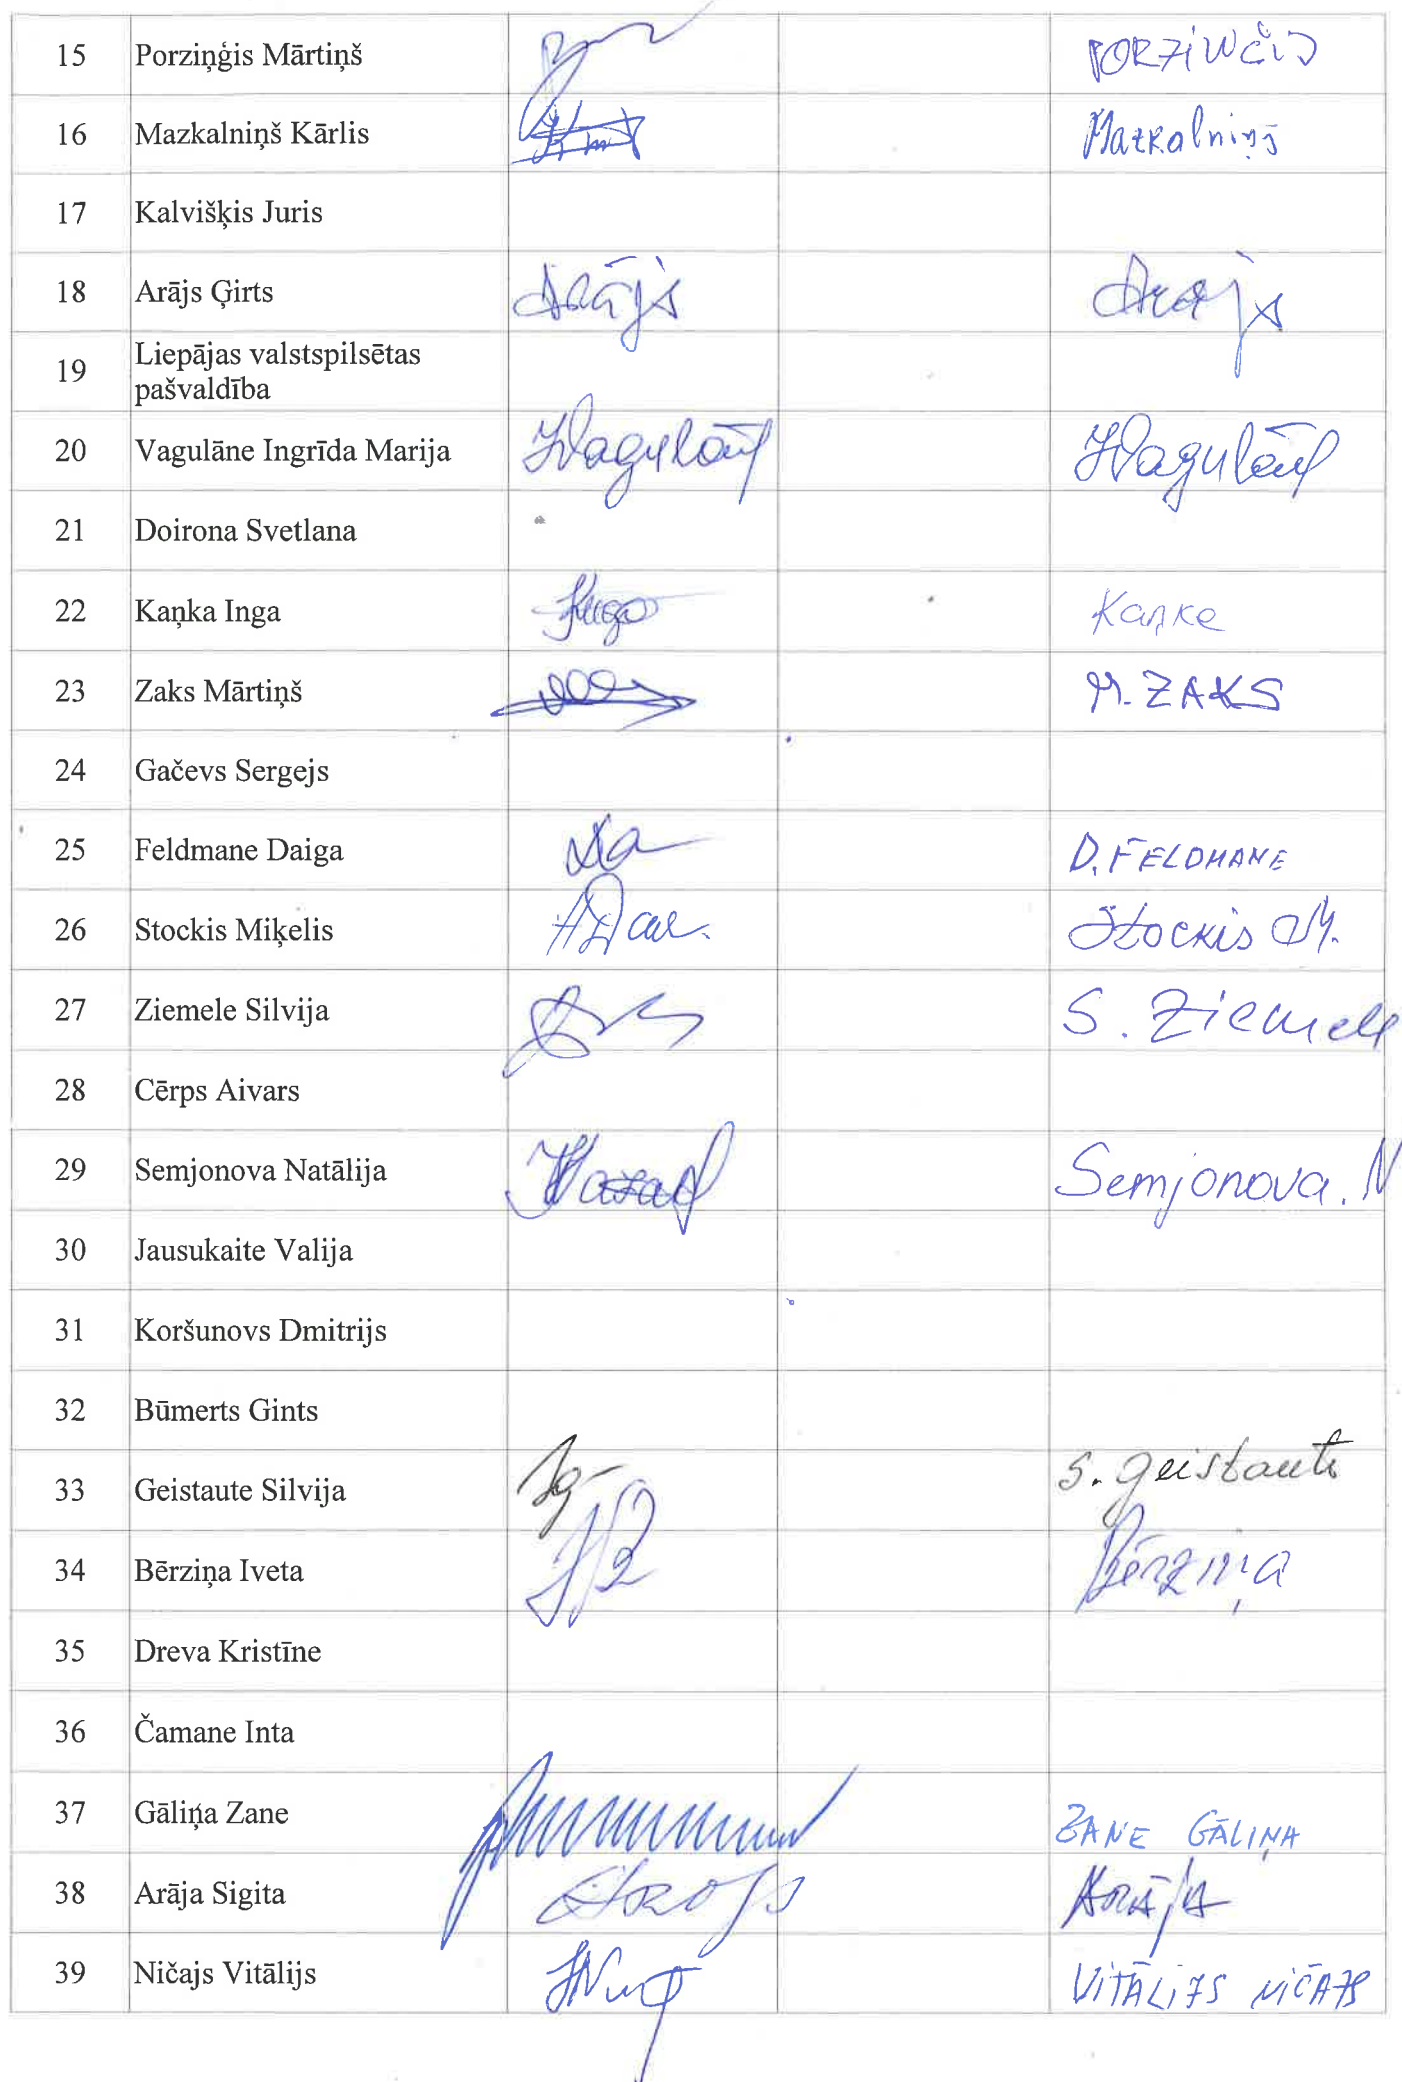 15 Porziņģis Mārtiņš
16 Mazkalniņš Kārlis Mazkalniņš
17 Kalvišķis Juris
18 Arājs Ģirts Arājs Arājs
19 Liepājas valstspilsētas
pašvaldība
20 Vagulāne Ingrīda Marija IVagulāne IVagulāne
21 Doirona Svetlana
22 Kaņka Inga Kaņke
23 Zaks Mārtiņš M. ZAKS
24 Gačevs Sergejs
25 Feldmane Daiga D. FELDMANE
26 Stockis Miķelis Stockis M.
27 Ziemele Silvija S. Ziemele
28 Cērps Aivars
29 Semjonova Natālija Semjonova. N
30 Jausukaite Valija
31 Koršunovs Dmitrijs
32 Būmerts Gints
33 Geistaute Silvija S. Geistaute
34 Bērziņa Iveta Bērziņa
35 Dreva Kristīne
36 Čamane Inta
37 Gāliņa Zane ZANE GĀLIŅA
38 Arāja Sigita Arāja
39 Ničajs Vitālijs VITĀLIJS NIČAJS